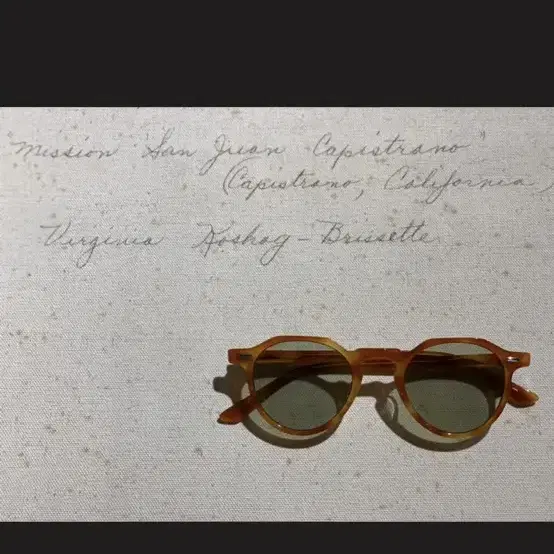 Mission San Juan Capistrano
(Capistrano, California)
Virginia Koshog-Brissette